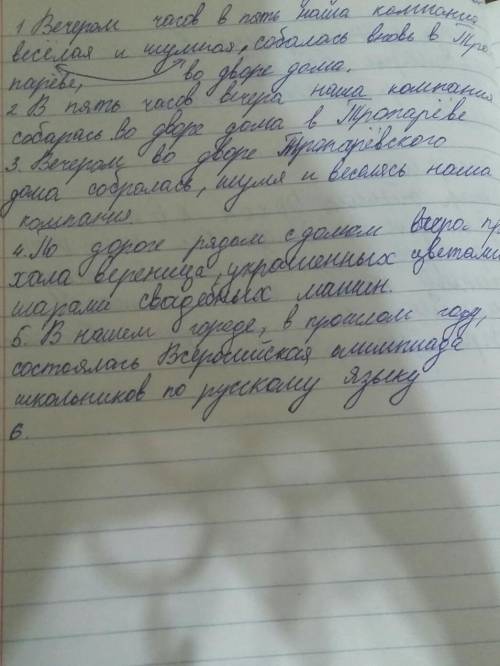 1 Вечером часов в пять наша компания
весёлая и шумная, собалась вновь в Тро
парёве, во дворе дома.
2. В пять часов вечера наша компания
собарась во дворе дома в Тропарёве
3. Вечером во дворе Тропарёвского
дома собралась, шумя и веселясь наша
компания.
4. По дороге рядом с домом вчера пр
хала вереница, украшенных цветами
шарами свадебных машин.
5. В нашем городе, в прошлом году,
состоялась Всеросийская олимпиада
школьников по русскому языку
6.